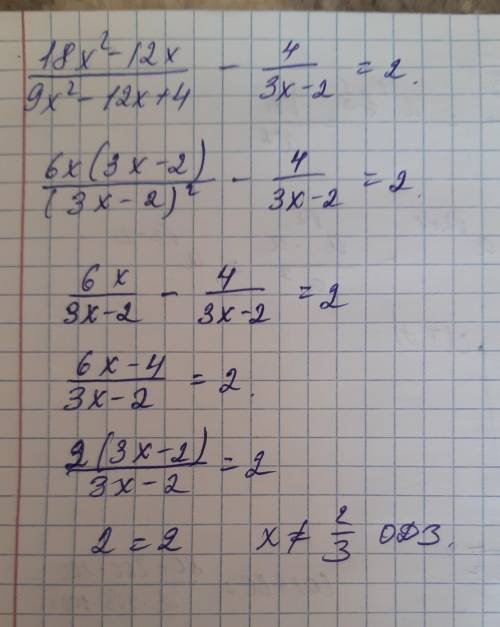 (18x²-12x)/(9x²-12x+4) - 4/(3x-2) = 2.
(6x(3x-2))/((3x-2)²) - 4/(3x-2) = 2.
6x/(3x-2) - 4/(3x-2) = 2
(6x-4)/(3x-2) = 2.
(2(3x-2))/(3x-2) = 2
2 = 2 x ≠ 2/3 ОДЗ.